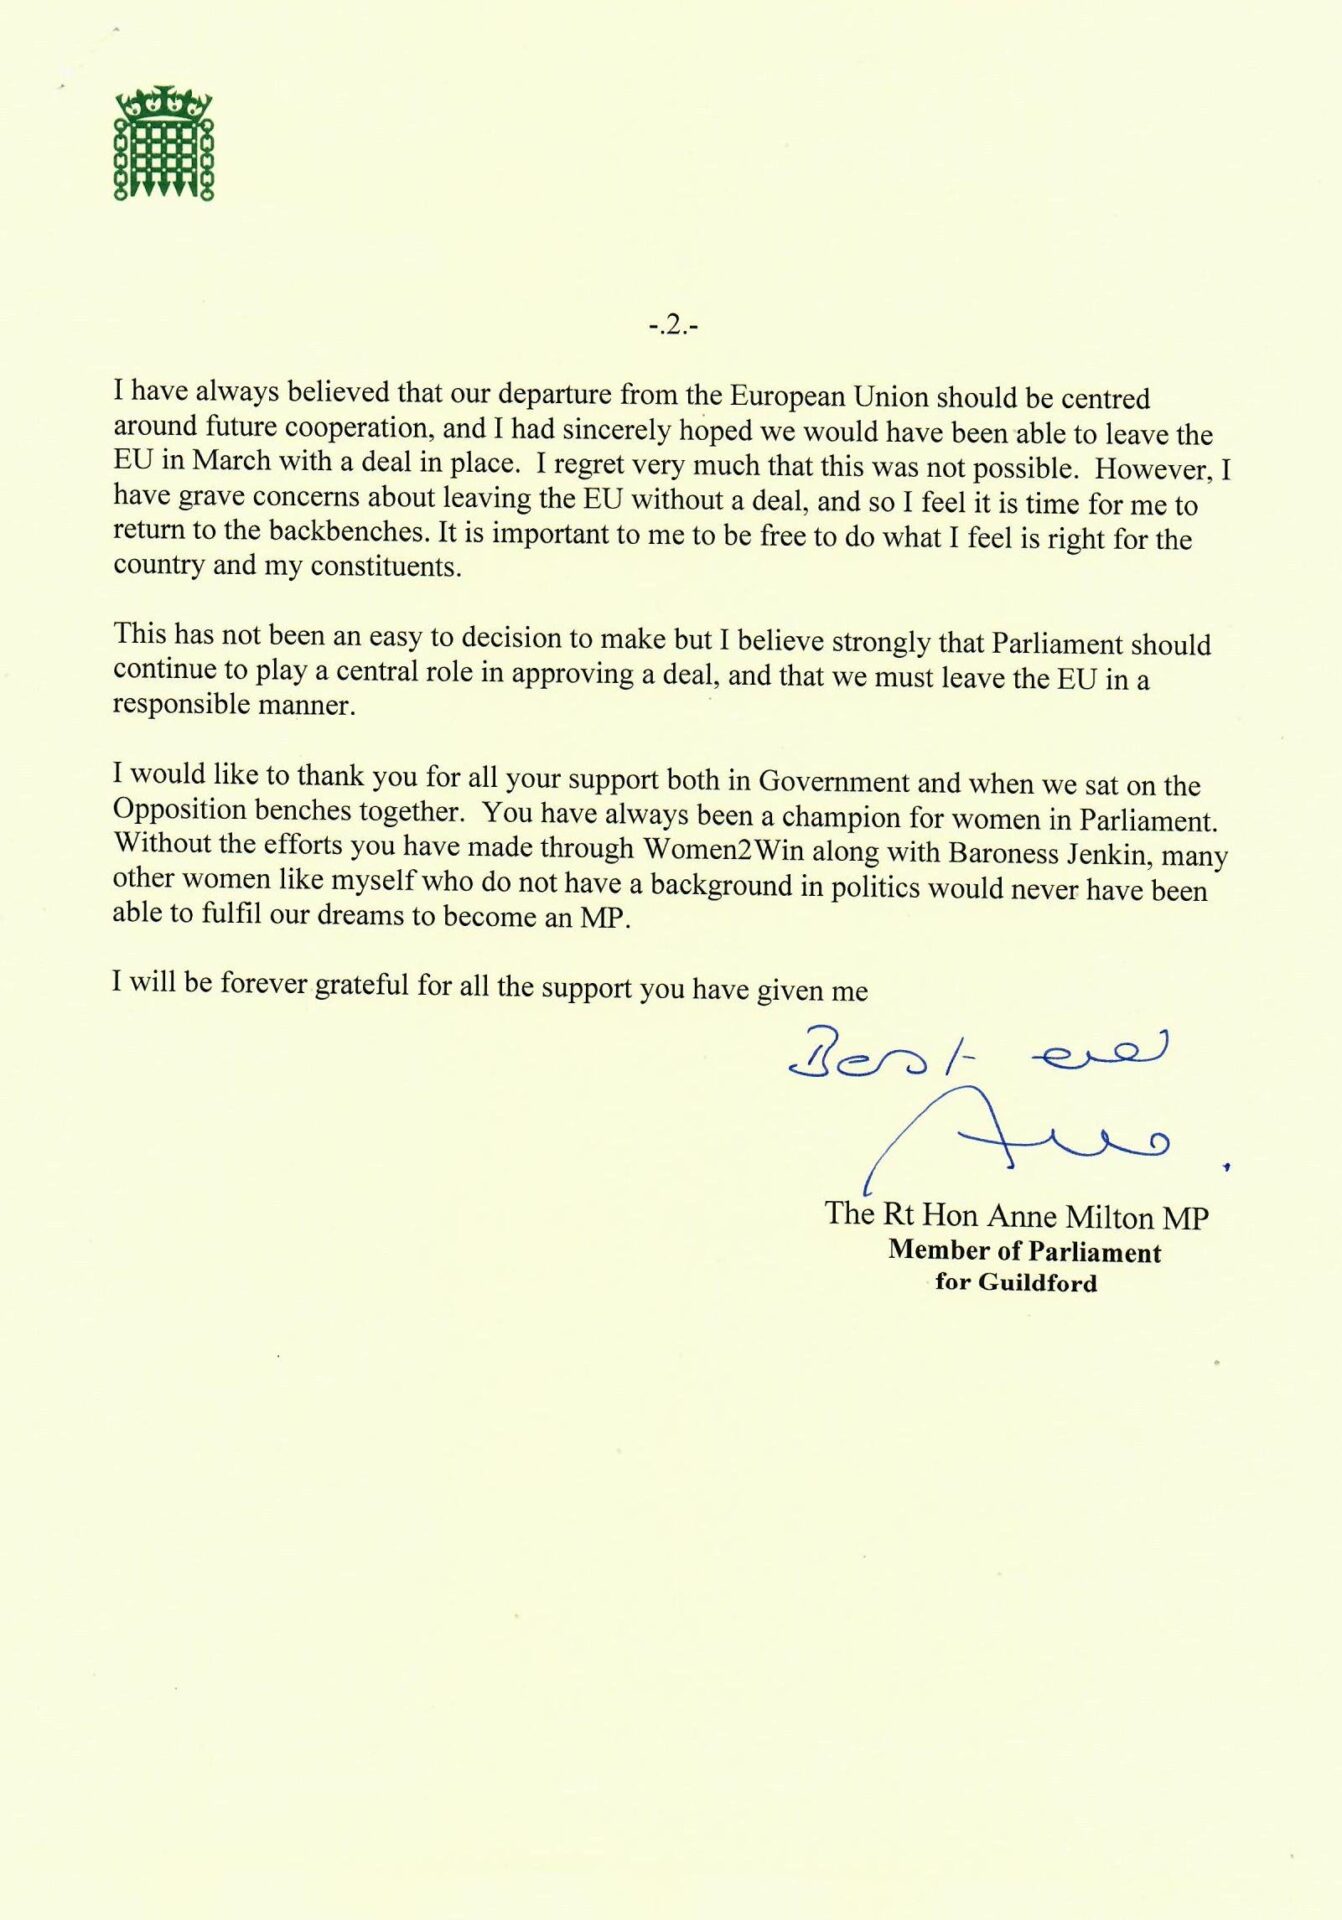 -.2.-
I have always believed that our departure from the European Union should be centred
around future cooperation, and I had sincerely hoped we would have been able to leave the
EU in March with a deal in place.  I regret very much that this was not possible.  However, I
have grave concerns about leaving the EU without a deal, and so I feel it is time for me to
return to the backbenches. It is important to me to be free to do what I feel is right for the
country and my constituents.
This has not been an easy to decision to make but I believe strongly that Parliament should
continue to play a central role in approving a deal, and that we must leave the EU in a
responsible manner.
I would like to thank you for all your support both in Government and when we sat on the
Opposition benches together.  You have always been a champion for women in Parliament.
Without the efforts you have made through Women2Win along with Baroness Jenkin, many
other women like myself who do not have a background in politics would never have been
able to fulfil our dreams to become an MP.
I will be forever grateful for all the support you have given me
Best
Anne
The Rt Hon Anne Milton MP
Member of Parliament
for Guildford